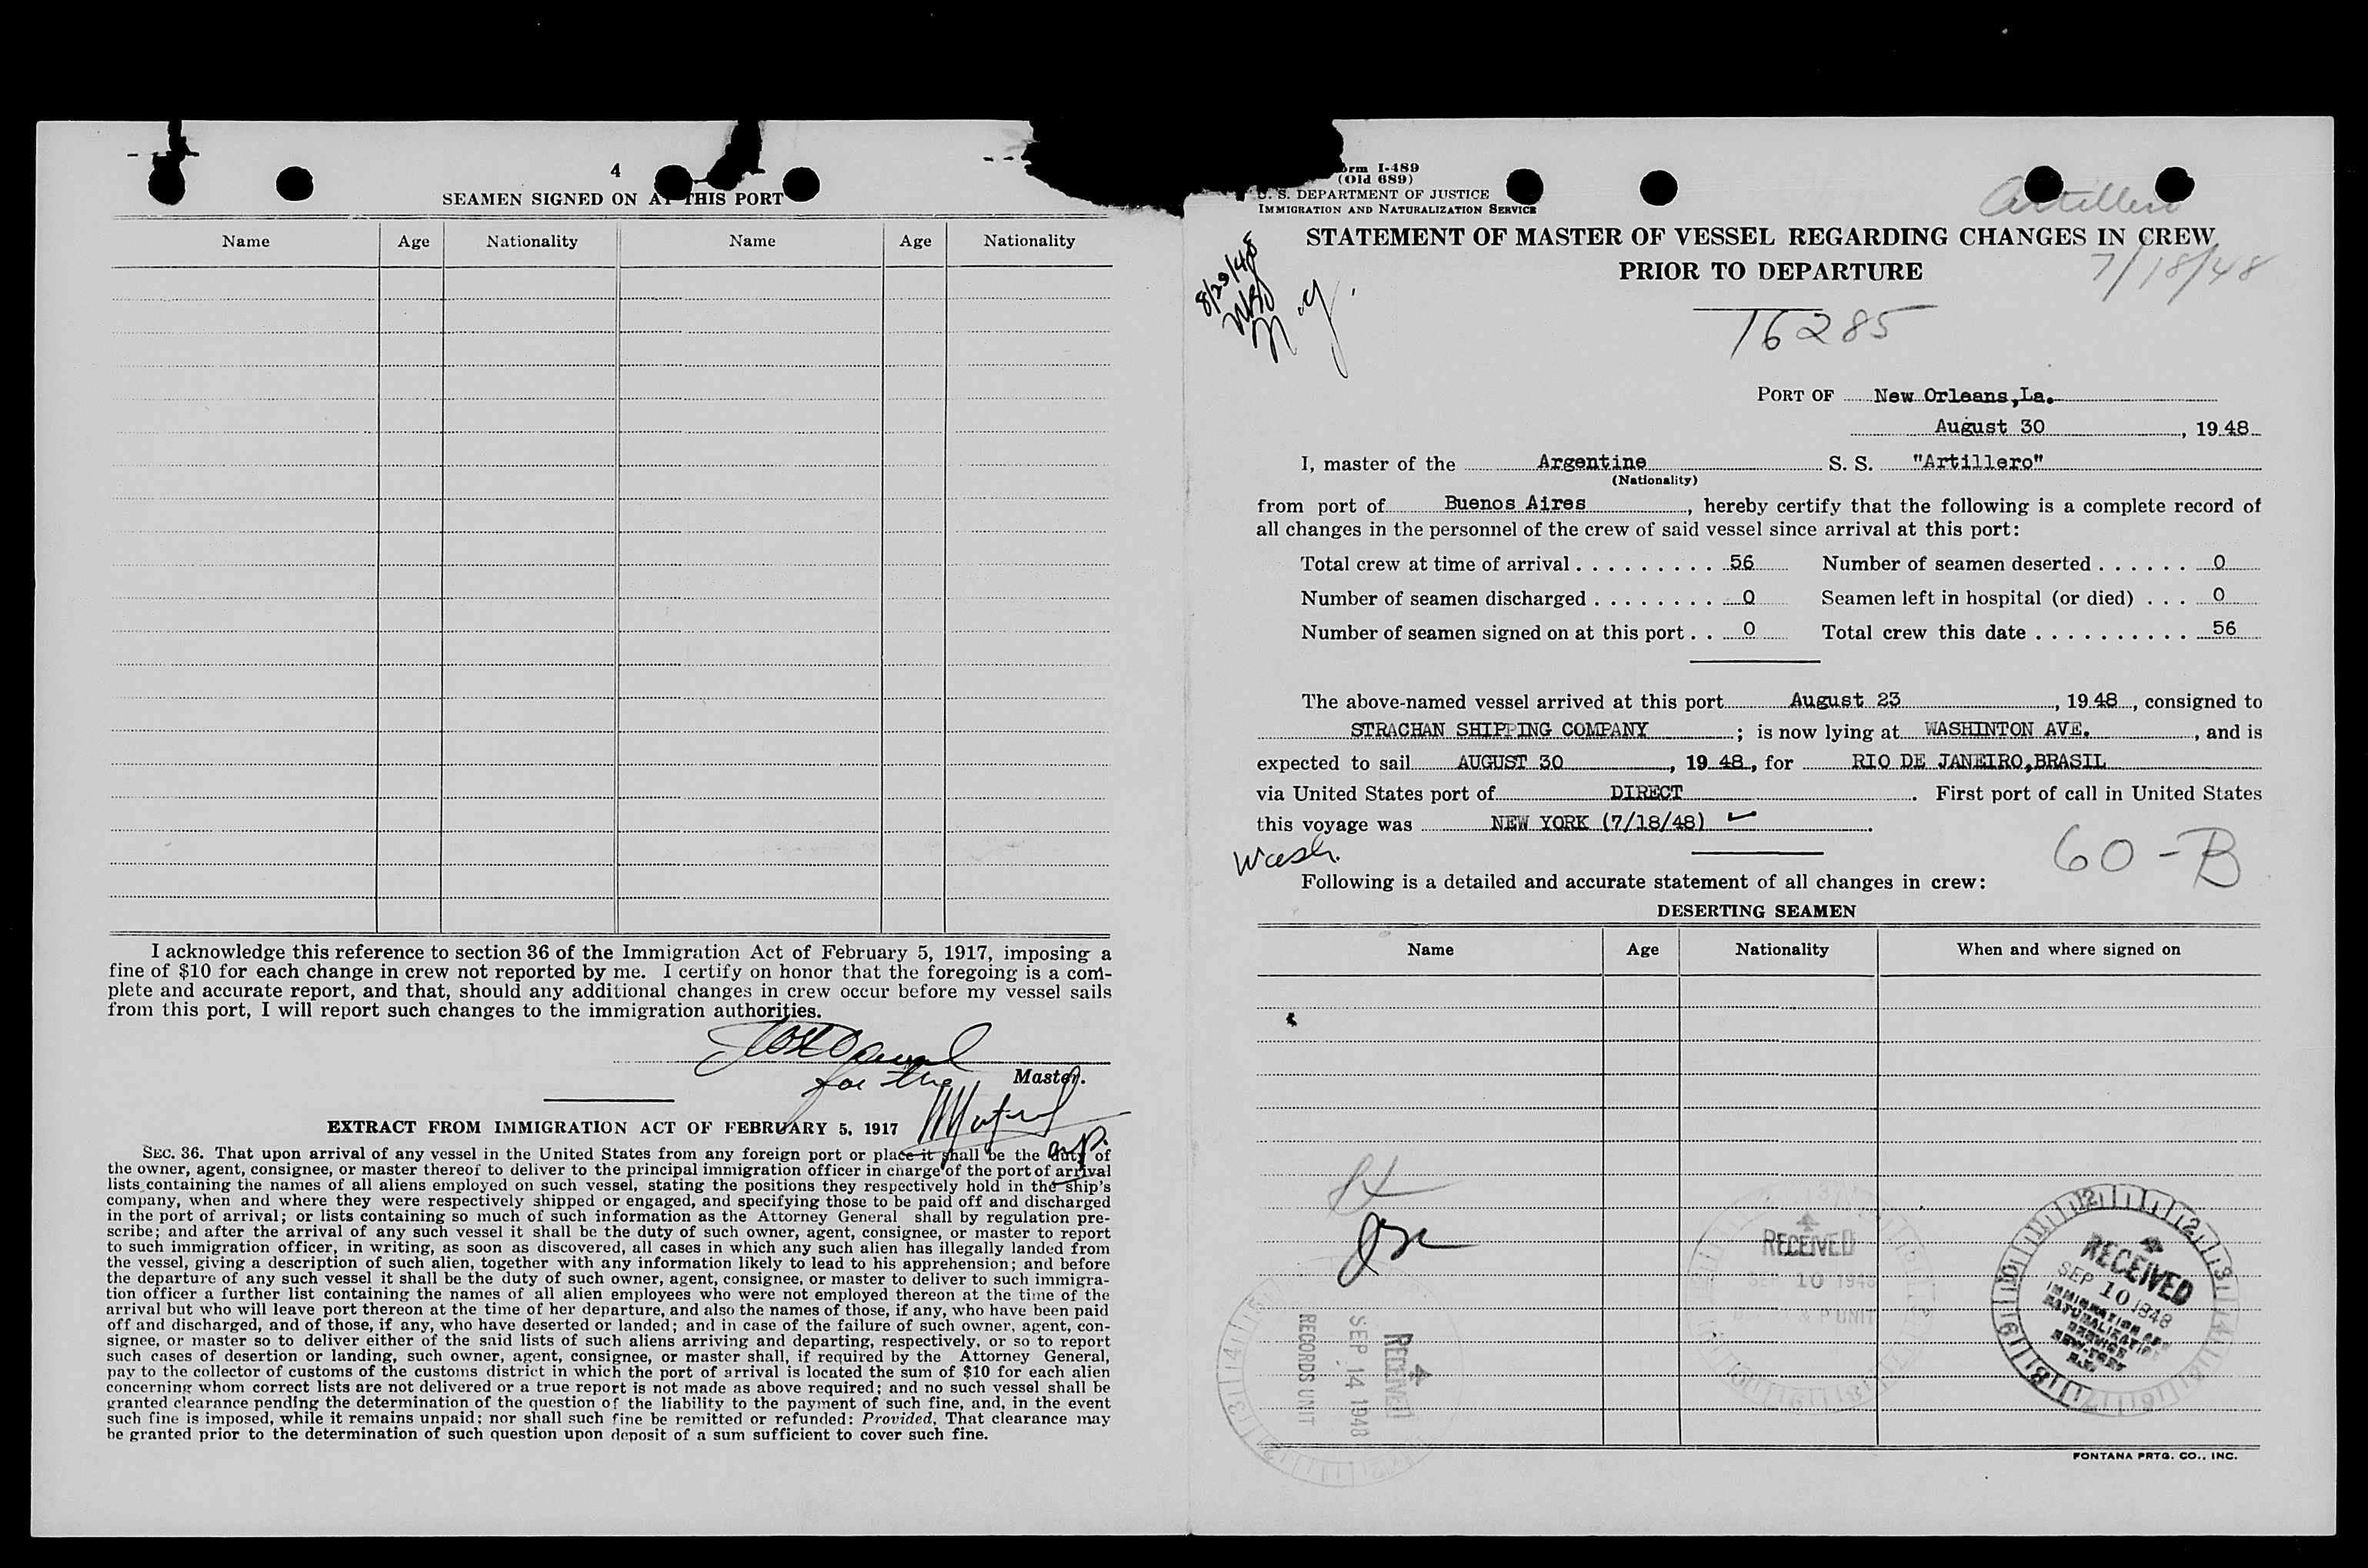 4
SEAMEN SIGNED ON AT THIS PORT
Name Age Nationality Name Age Nationality
I acknowledge this reference to section 36 of the Immigration Act of February 5, 1917, imposing a
fine of $10 for each change in crew not reported by me. I certify on honor that the foregoing is a com-
plete and accurate report, and that, should any additional changes in crew occur before my vessel sails
from this port, I will report such changes to the immigration authorities.
for the
Master.
EXTRACT FROM IMMIGRATION ACT OF FEBRUARY 5, 1917
SEC. 36. That upon arrival of any vessel in the United States from any foreign port or place it shall be the duty of
the owner, agent, consignee, or master thereof to deliver to the principal immigration officer in charge of the port of arrival
lists containing the names of all aliens employed on such vessel, stating the positions they respectively hold in the ship's
company, when and where they were respectively shipped or engaged, and specifying those to be paid off and discharged
in the port of arrival; or lists containing so much of such information as the Attorney General shall by regulation pre-
scribe; and after the arrival of any such vessel it shall be the duty of such owner, agent, consignee, or master to report
to such immigration officer, in writing, as soon as discovered, all cases in which any such alien has illegally landed from
the vessel, giving a description of such alien, together with any information likely to lead to his apprehension; and before
the departure of any such vessel it shall be the duty of such owner, agent, consignee, or master to deliver to such immigra-
tion officer a further list containing the names of all alien employees who were not employed thereon at the time of the
arrival but who will leave port thereon at the time of her departure, and also the names of those, if any, who have been paid
off and discharged, and of those, if any, who have deserted or landed; and in case of the failure of such owner, agent, con-
signee, or master so to deliver either of the said lists of such aliens arriving and departing, respectively, or so to report
such cases of desertion or landing, such owner, agent, consignee, or master shall, if required by the Attorney General,
pay to the collector of customs of the customs district in which the port of arrival is located the sum of $10 for each alien
concerning whom correct lists are not delivered or a true report is not made as above required; and no such vessel shall be
granted clearance pending the determination of the question of the liability to the payment of such fine, and, in the event
such fine is imposed, while it remains unpaid; nor shall such fine be remitted or refunded: Provided, That clearance may
be granted prior to the determination of such question upon deposit of a sum sufficient to cover such fine.
Form I-489
(Old 689)
U. S. DEPARTMENT OF JUSTICE
IMMIGRATION AND NATURALIZATION SERVICE
Artillero
STATEMENT OF MASTER OF VESSEL REGARDING CHANGES IN CREW
PRIOR TO DEPARTURE
7/18/48
8/23/48
N.Y.
16285
PORT OF New Orleans,La.
August 30, 19 48
I, master of the Argentine S. S. "Artillero"
(Nationality)
from port of Buenos Aires, hereby certify that the following is a complete record of
all changes in the personnel of the crew of said vessel since arrival at this port:
Total crew at time of arrival . . . . . . . . . 56 Number of seamen deserted . . . . . . 0
Number of seamen discharged . . . . . . . . 0 Seamen left in hospital (or died) . . . 0
Number of seamen signed on at this port . . 0 Total crew this date . . . . . . . . . . 56
The above-named vessel arrived at this port August 23, 19 48, consigned to
STRACHAN SHIPPING COMPANY; is now lying at WASHINTON AVE., and is
expected to sail AUGUST 30, 19 48, for RIO DE JANEIRO,BRASIL
via United States port of DIRECT. First port of call in United States
this voyage was NEW YORK (7/18/48) ✓.
Wash.
60-B
Following is a detailed and accurate statement of all changes in crew:
DESERTING SEAMEN
Name Age Nationality When and where signed on
RECEIVED
SEP 14 1948
RECORDS UNIT
RECEIVED
SEP 10 1948
& P UNIT
RECEIVED
SEP 10 1948
IMMIGRATION &
NATURALIZATION
SERVICE
NEW YORK
N.Y.
FONTANA PRTG. CO., INC.